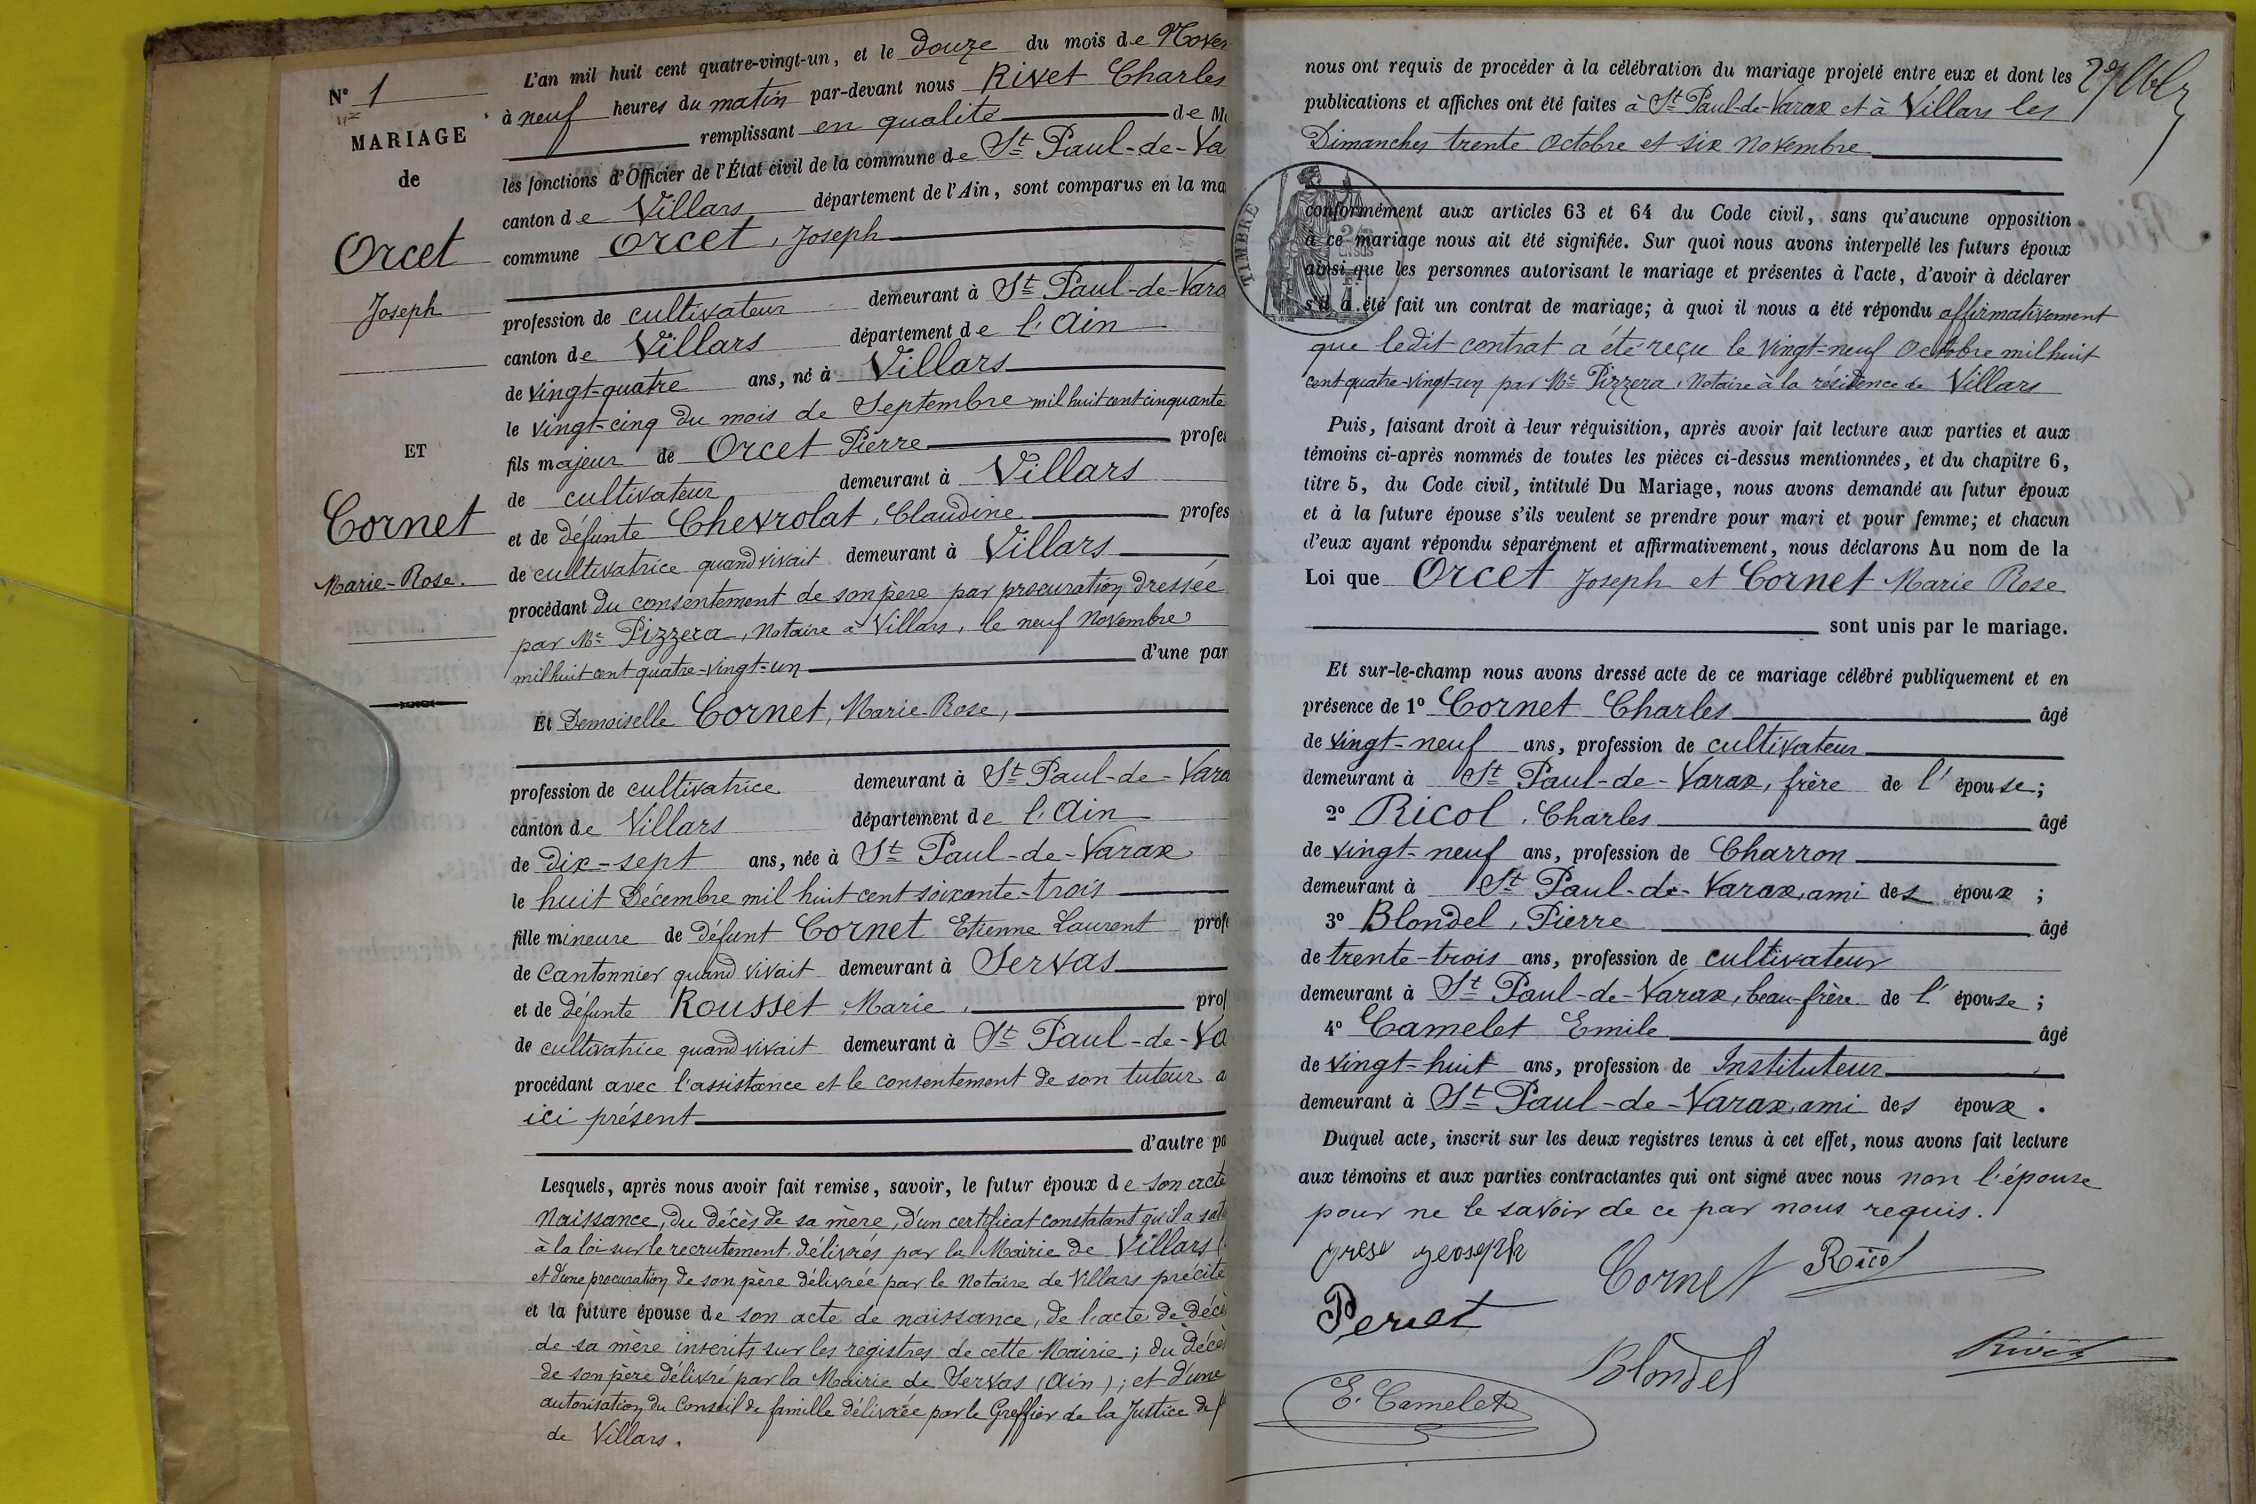 N° 1
MARIAGE
de
Orcet
Joseph
ET
Cornet
Marie-Rose.
L'an mil huit cent quatre-vingt-un, et le douze du mois de Novem
à neuf heures du matin par-devant nous Rivet Charles
remplissant en qualité de M
les fonctions d'Officier de l'État civil de la commune de St Paul-de-Va
canton de Villars département de l'Ain, sont comparus en la ma
commune Orcet, Joseph
profession de cultivateur demeurant à St Paul-de-Vara
canton de Villars département de l'Ain
de vingt-quatre ans, né à Villars
le vingt-cinq du mois de Septembre mil huit cent cinquante
fils majeur de Orcet Pierre profes
de cultivateur demeurant à Villars
et de défunte Chevrolat, Claudine profes
de cultivatrice quand vivait demeurant à Villars
procédant du consentement de son père par procuration dressée
par Me Pizzera, Notaire à Villars, le neuf Novembre
mil huit cent quatre-vingt-un d'une par
Et Demoiselle Cornet, Marie-Rose,
profession de cultivatrice demeurant à St Paul-de-Vara
canton de Villars département de l'Ain
de dix-sept ans, née à St Paul-de-Varax
le huit Décembre mil huit cent soixante-trois
fille mineure de défunt Cornet Etienne Laurent prof
de Cantonnier quand vivait demeurant à Servas
et de défunte Rousset Marie, prof
de cultivatrice quand vivait demeurant à St Paul-de-Va
procédant avec l'assistance et le consentement de son tuteur a
ici présent
d'autre pa
Lesquels, après nous avoir fait remise, savoir, le futur époux de son acte
Naissance, du décès de sa mère, d'un certificat constatant qu'il a sat
à la loi sur le recrutement délivrés par la Mairie de Villars
et d'une procuration de son père délivrée par le Notaire de Villars précité
et la future épouse de son acte de naissance, de l'acte de décè
de sa mère inscrits sur les registres de cette Mairie; du décè
de son père délivré par la Mairie de Servas (Ain); et d'une
autorisation du Conseil de famille délivrée par le Greffier de la Justice de p
de Villars.
nous ont requis de procéder à la célébration du mariage projeté entre eux et dont les
publications et affiches ont été faites à St Paul-de-Varax et à Villars les
Dimanches trente Octobre et six Novembre
TIMBRE
conformément aux articles 63 et 64 du Code civil, sans qu'aucune opposition
à ce mariage nous ait été signifiée. Sur quoi nous avons interpellé les futurs époux
ainsi que les personnes autorisant le mariage et présentes à l'acte, d'avoir à déclarer
s'il a été fait un contrat de mariage; à quoi il nous a été répondu affirmativement
que ledit contrat a été reçu le vingt-neuf Octobre mil huit
cent quatre-vingt-un par Me Pizzera, Notaire à la résidence de Villars
Puis, faisant droit à leur réquisition, après avoir fait lecture aux parties et aux
témoins ci-après nommés de toutes les pièces ci-dessus mentionnées, et du chapitre 6,
titre 5, du Code civil, intitulé Du Mariage, nous avons demandé au futur époux
et à la future épouse s'ils veulent se prendre pour mari et pour femme; et chacun
d'eux ayant répondu séparément et affirmativement, nous déclarons Au nom de la
Loi que Orcet Joseph et Cornet Marie Rose
sont unis par le mariage.
Et sur-le-champ nous avons dressé acte de ce mariage célébré publiquement et en
présence de 1° Cornet Charles âgé
de vingt-neuf ans, profession de cultivateur
demeurant à St Paul-de-Varax, frère de l'épouse;
2° Ricol, Charles âgé
de vingt-neuf ans, profession de Charron
demeurant à St Paul-de-Varax, ami des époux;
3° Blondel, Pierre âgé
de trente-trois ans, profession de cultivateur
demeurant à St Paul-de-Varax, beau-frère de l'épouse;
4° Camelet Emile âgé
de vingt-huit ans, profession de Instituteur
demeurant à St Paul-de-Varax, ami des époux.
Duquel acte, inscrit sur les deux registres tenus à cet effet, nous avons fait lecture
aux témoins et aux parties contractantes qui ont signé avec nous non l'épouse
pour ne le savoir de ce par nous requis.
Cornet Ricol
Perret
Blondel Rivet
E. Camelet